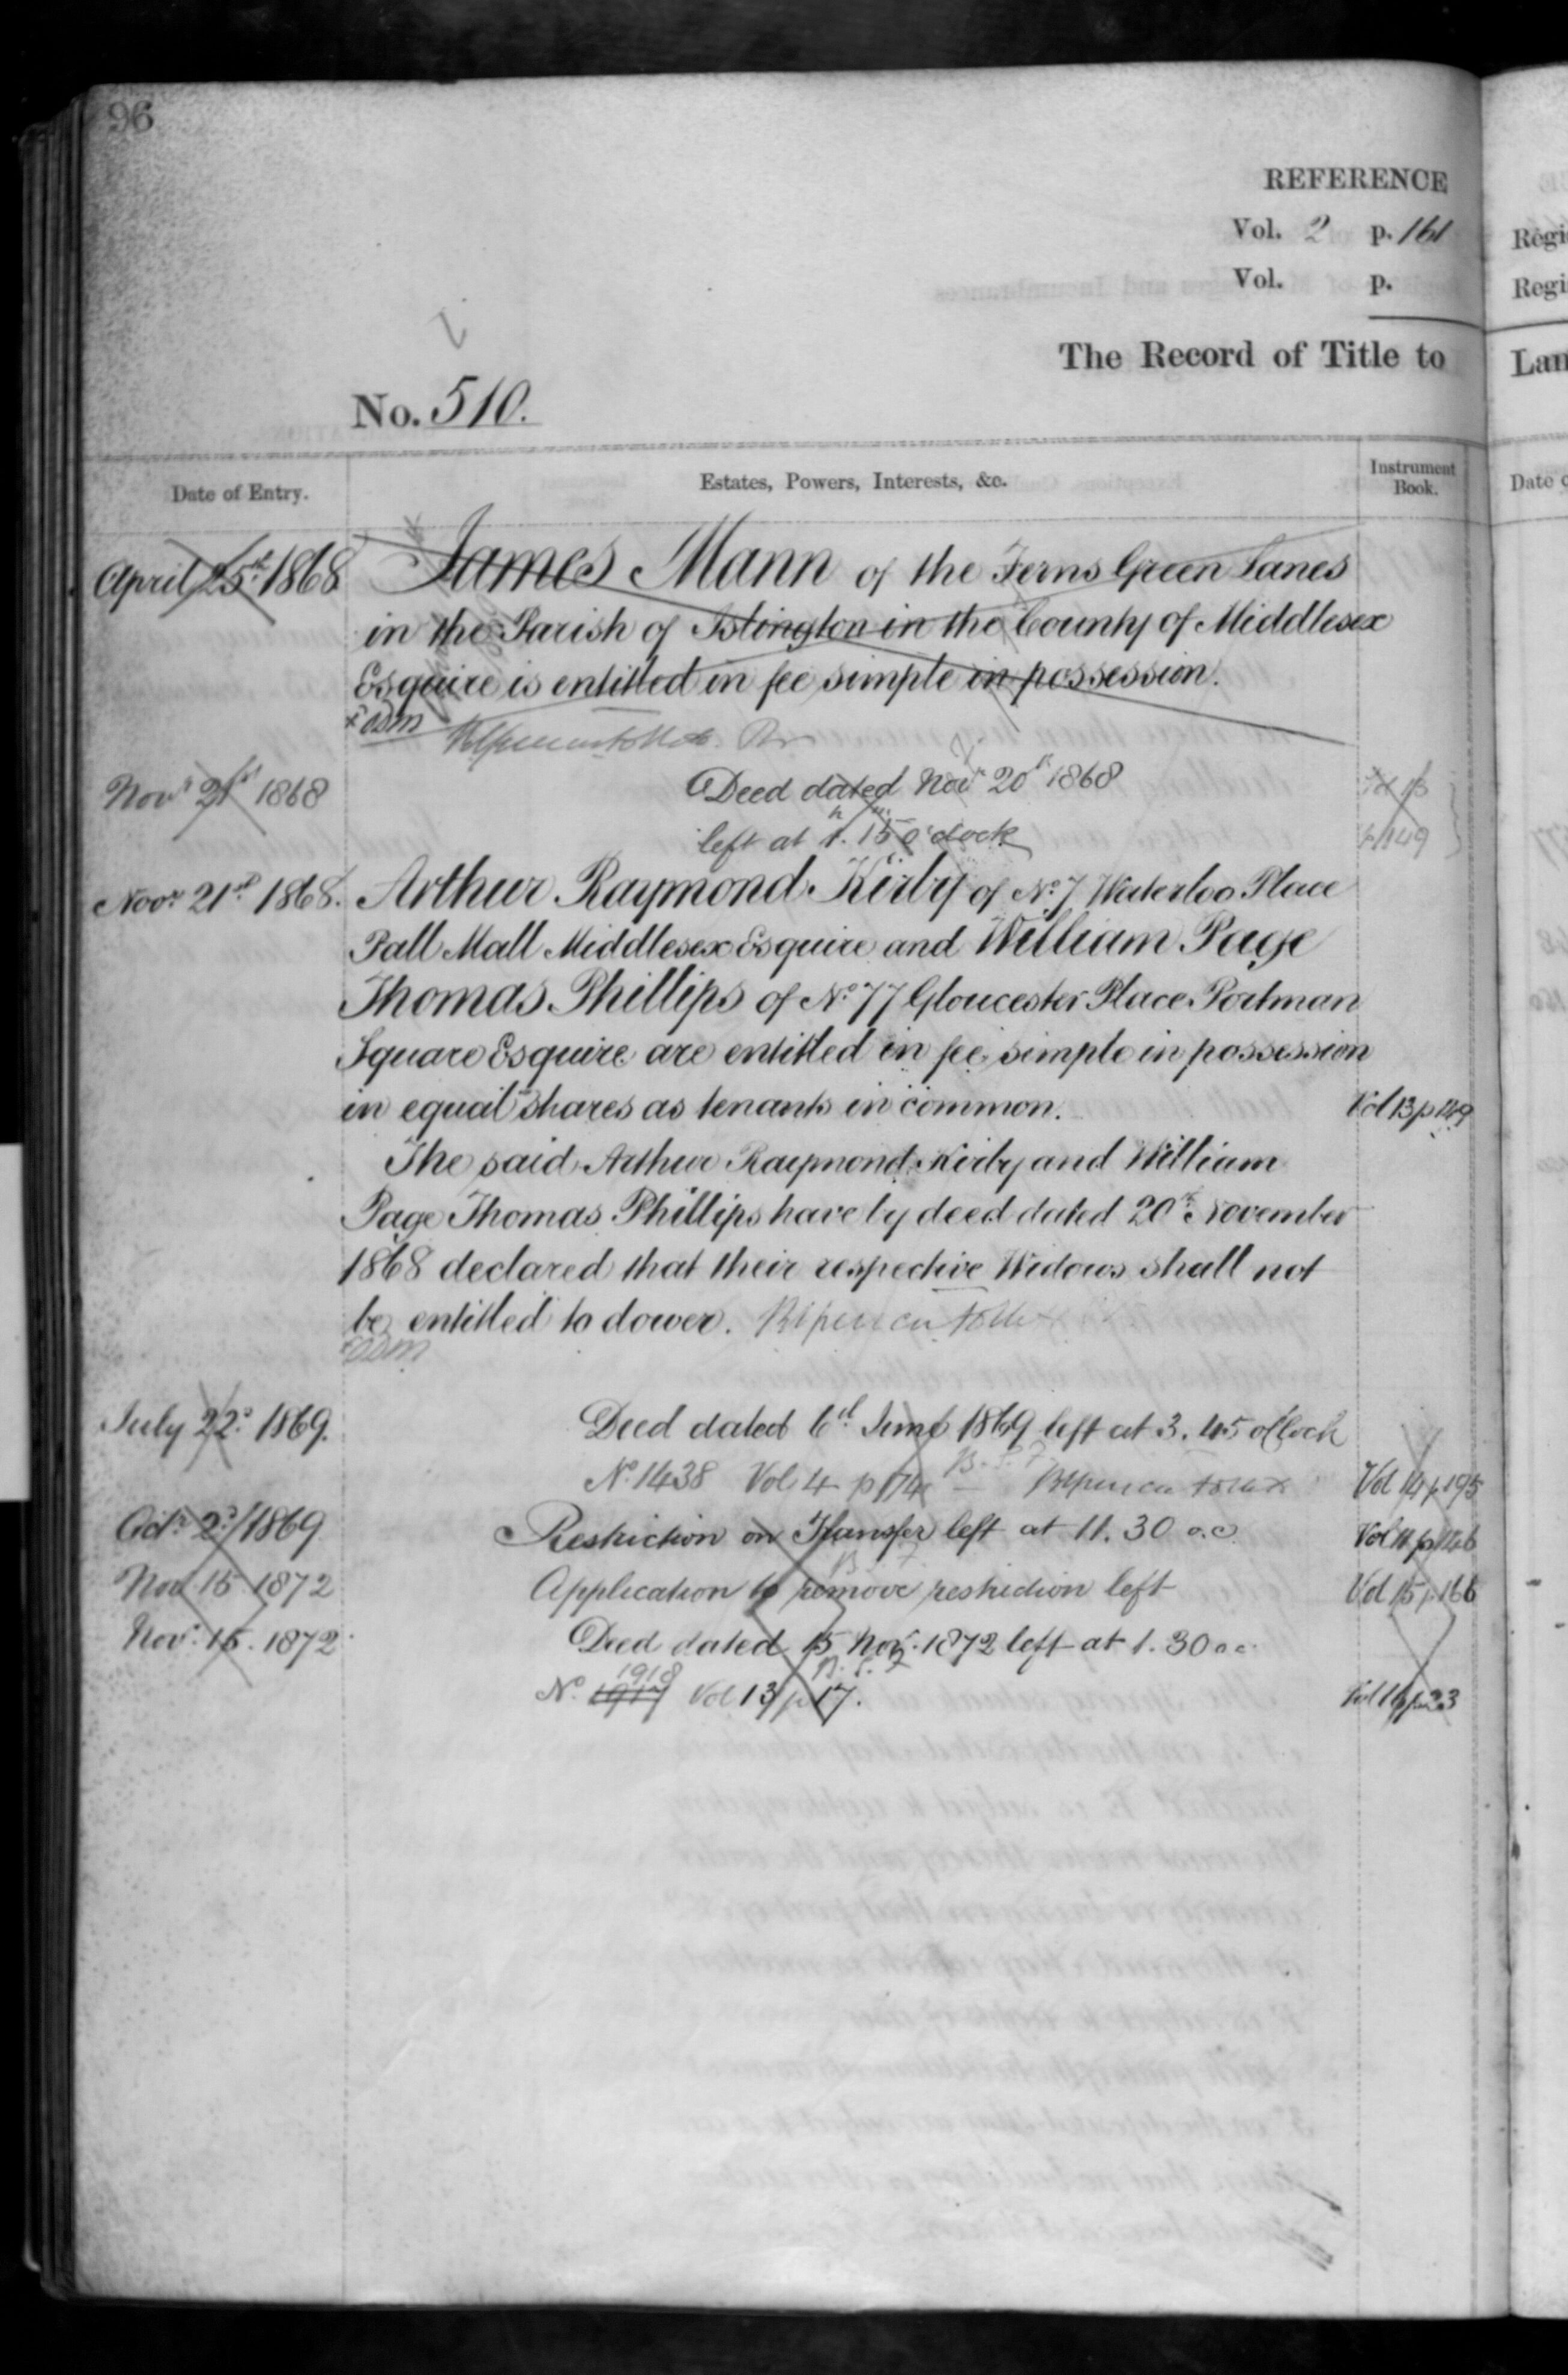 96
REFERENCE
Vol. 2 p. 161
Vol. p.
The Record of Title to
No. 510.
Date of Entry. Estates, Powers, Interests, &c. Instrument Book.
April 25th 1868 James Mann of the Ferns Green Lanes
in the Parish of Islington in the County of Middlesex
Esquire is entitled in fee simple in possession.
Novr 21st 1868 Deed dated Novr 20th 1868
left at 1h. 15m o'clock p 149
Novr 21st 1868. Arthur Raymond Kirby of No 7 Waterloo Place
Pall Mall Middlesex Esquire and William Page
Thomas Phillips of No 77 Gloucester Place Portman
Square Esquire are entitled in fee simple in possession
in equal shares as tenants in common. Vol 13 p 149
The said Arthur Raymond Kirby and William
Page Thomas Phillips have by deed dated 20th November
1868 declared that their respective Widows shall not
be entitled to dower.
July 22d 1869. Deed dated 6th June 1869 left at 3.45 o'Clock
No 1438 Vol 4 p 174 Vol 14 p 195
Octr 2d 1869 Restriction on Transfer left at 11.30 o.c Vol 11 p 146
Nov 15 1872 Application to remove restriction left Vol 15 p 166
Novr 15. 1872 Deed dated 15 Novr 1872 left at 1.30 o c
No 1918 Vol 13 p 17. Vol 16 p 23
Regi
Regi
Lan
Date o